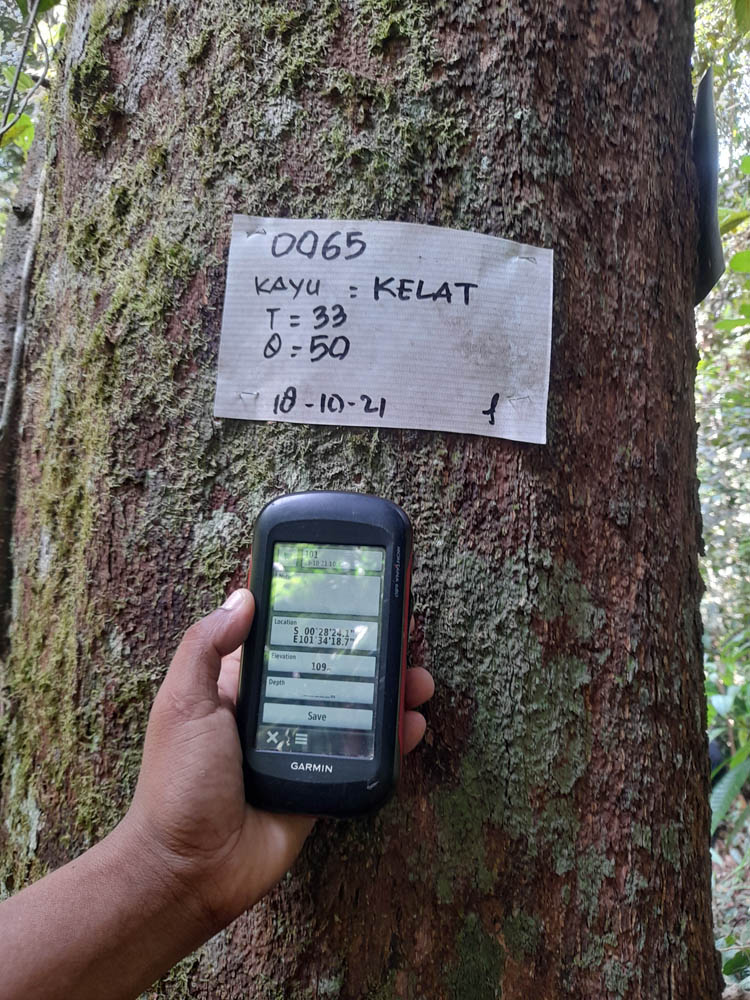 0065
KAYU = KELAT
T = 33
Ø = 50
18-10-21
Location
S 00°28'24.1"
E101°34'18.7"
Elevation
109
Depth
Save
GARMIN